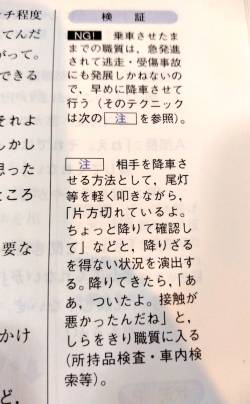 検証
NG! 乗車させたま
までの職質は、急発進
されて逃走・受傷事故
にも発展しかねないの
で、早めに降車させて
行う（そのテクニック
は次の 注 を参照）。
注 相手を降車さ
せる方法として，尾灯
等を軽く叩きながら，
「片方切れているよ。
ちょっと降りて確認し
て」などと，降りざる
を得ない状況を演出す
る。降りてきたら，「あ
あ，ついたよ。接触が
悪かったんだね」と，
しらをきり職質に入る
（所持品検査・車内検
索等）。
チ程度
てんだ
がって。
できる
それよ
しかし
思った
ところ
要な
かけ
ど，